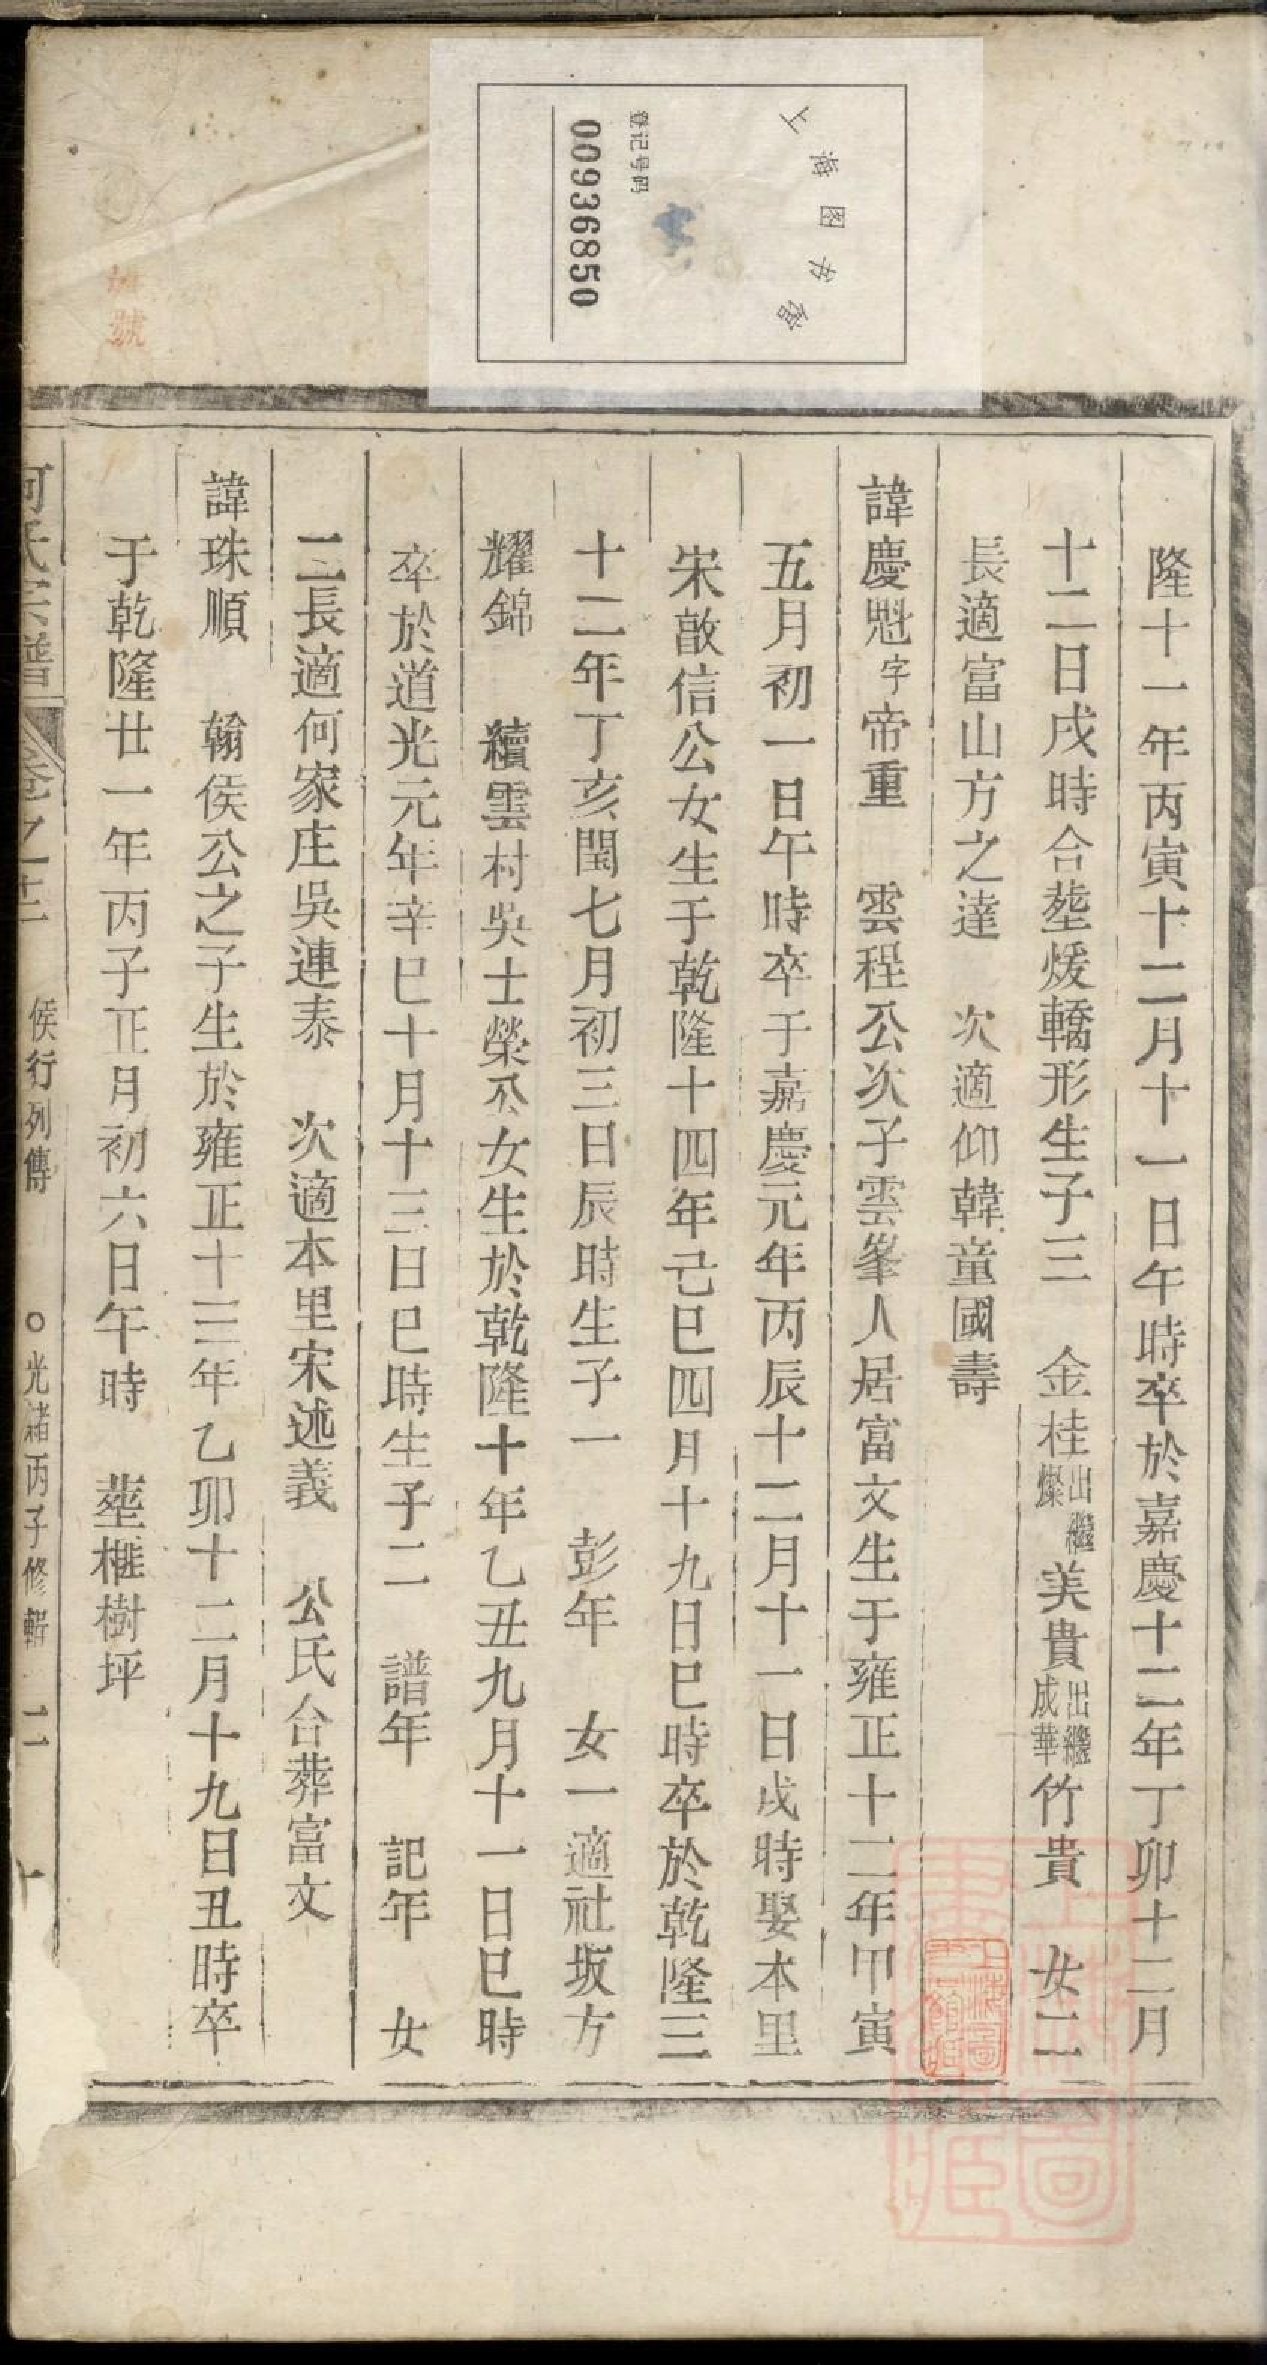 上海图书馆
登记号码
00936850
隆十一年丙寅十二月十一日午時卒於嘉慶十二年丁卯十二月
十二日戌時合塟煖轎形生子三　金桂出繼燦　美貴出繼成華　竹貴　女二
長適富山方之達　次適仰韓童國壽
諱慶魁字帝重　雲程公次子雲峯人居富文生于雍正十二年甲寅
五月初一日午時卒于嘉慶元年丙辰十二月十一日戌時娶本里
宋啟信公女生于乾隆十四年己巳四月十九日巳時卒於乾隆三
十二年丁亥閏七月初三日辰時生子一　彭年　女一適社坂方
耀錦　續雲村吳士榮公女生於乾隆十年乙丑九月十一日巳時
卒於道光元年辛巳十月十三日巳時生子二　譜年　記年　女
二長適何家庄吳連泰　次適本里宋述義　公氏合葬富文
諱珠順　翰侯公之子生於雍正十三年乙卯十二月十九日丑時卒
于乾隆廿一年丙子正月初六日午時　塟榧樹坪
何氏宗譜　卷之十二　侯行列傳　○光緒丙子修輯　二